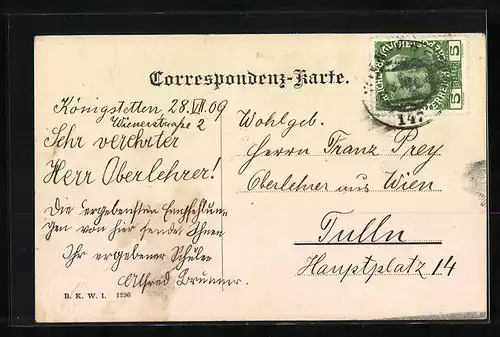 Correspondenz-Karte.
Königstetten, 28. VII. 09
Wienerstraße 2
Sehr verehrter
Herr Oberlehrer!
Die ergebensten Empfehlun-
gen von hier sendet Ihnen
Ihr ergebener Schüler
Alfred Brunner.
B. K. W. I. 1296
5
5
147
Wohlgeb.
Herrn Franz Prey
Oberlehrer aus Wien
Tulln
Hauptplatz 14